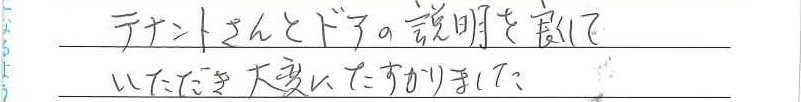 テナントさんとドアの説明を
いただき大変にたすかりました